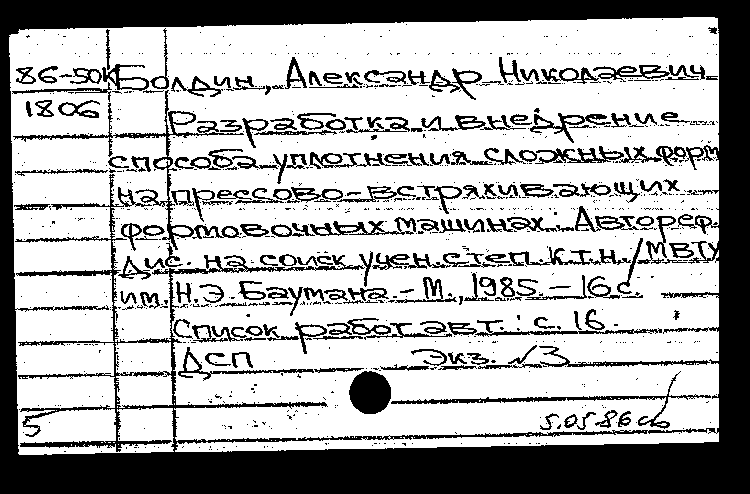 86-50К Болдин, Александр Николаевич
1806 Разработка и внедрение
способа уплотнения сложных форм
на прессово-встряхивающих
формовочных машинах: Автореф.
Дис. на соиск учен. степ. к.т.н. / МВТУ
им. Н.Э. Баумана. - М., 1985. - 16 с.
Список работ авт.: с. 16.
ДСП Экз. №3
5 5.05.86